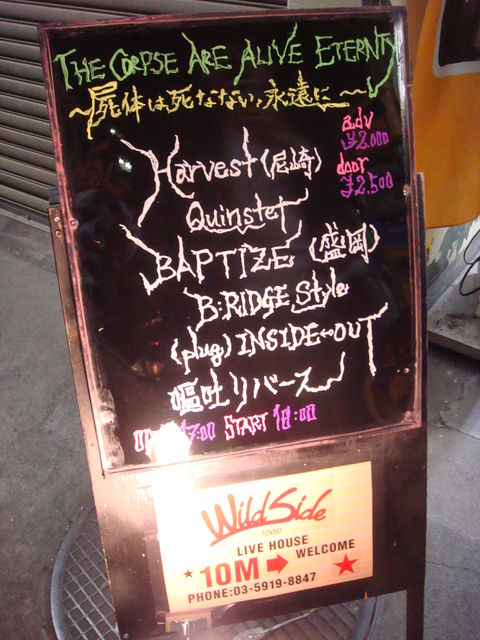 THE CORPSE ARE ALIVE ETERNTY
~屍体は死なない、永遠に~
adv
¥2.000
door
¥2.500
Harvest (尼崎)
Quinstet
BAPTIZE (盛岡)
B:RIDGE style
(plug) INSIDE↔OUT
嘔吐リバース
17:00 START 18:00
Wild Side
TOKYO
LIVE HOUSE
★10M➡WELCOME★
PHONE:03-5919-8847